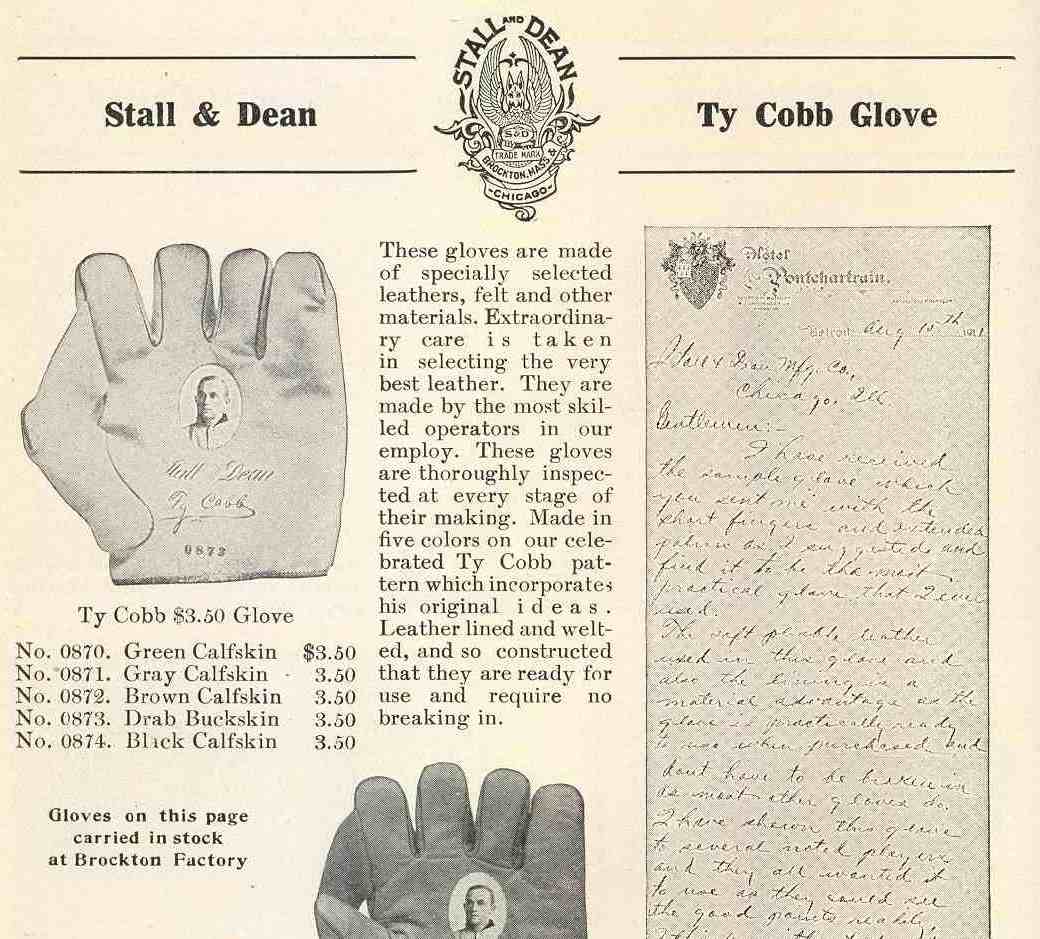 Stall & Dean
STALL AND DEAN
S & D
TRADE MARK
BROCKTON, MASS. &
-CHICAGO-
Ty Cobb Glove
Stall Dean
Ty Cobb
0873
Ty Cobb $3.50 Glove
No. 0870. Green Calfskin $3.50
No. 0871. Gray Calfskin 3.50
No. 0872. Brown Calfskin 3.50
No. 0873. Drab Buckskin 3.50
No. 0874. Black Calfskin 3.50
Gloves on this page
carried in stock
at Brockton Factory
These gloves are made
of specially selected
leathers, felt and other
materials. Extraordina-
ry care is taken
in selecting the very
best leather. They are
made by the most skil-
led operators in our
employ. These gloves
are thoroughly inspec-
ted at every stage of
their making. Made in
five colors on our cele-
brated Ty Cobb pat-
tern which incorporates
his original ideas.
Leather lined and welt-
ed, and so constructed
that they are ready for
use and require no
breaking in.
Hotel
Pontchartrain.
Detroit Aug 10th 1911
Stall & Dean Mfg. Co.,
Chicago, Ill
Gentlemen:-
I have received
the sample glove which
you sent me with the
short fingers and extended
palm as I suggested and
find it to be the most
practical glove that I ever
used.
The soft pliable leather
used in this glove and
also the lining is a
material advantage as the
glove is practically ready
to use when purchased and
dont have to be broken in
as most other gloves do.
I have shown this glove
to several noted players
and they all wanted it
to use as they could see
the good points